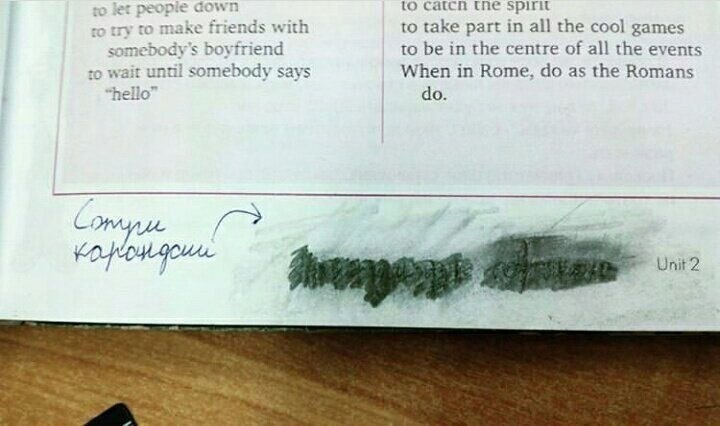 to let people down
to try to make friends with
somebody's boyfriend
to wait until somebody says
"hello"
to catch the spirit
to take part in all the cool games
to be in the centre of all the events
When in Rome, do as the Romans
do.
Сотри
карандаш
Unit 2